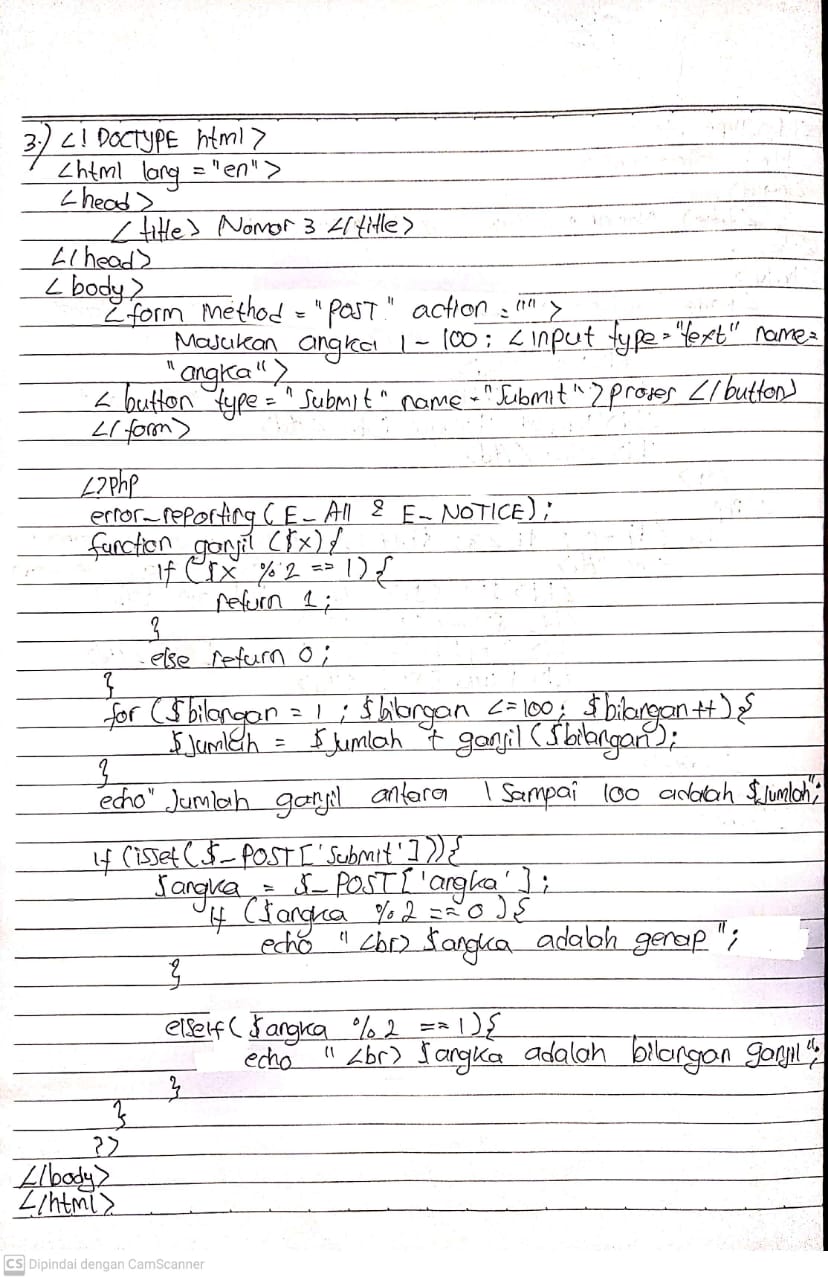 3.) <! DOCTYPE html>
<html lang = "en">
<head>
<title> Nomor 3 </title>
</head>
<body>
<form method = "POST" action = "">
Masukan angka 1 - 100 : <input type = "text" name =
"angka">
< button type = "Submit" name = "Submit" > proses </button>
</form>
<?php
error_reporting (E_All & E_NOTICE);
function ganjil ($x) {
if ($x % 2 == 1) {
return 1;
}
else return 0;
}
for ($bilangan = 1 ; $bilangan <= 100; $bilangan ++) {
$jumlah = $jumlah + ganjil ($bilangan);
}
echo" Jumlah ganjil antara 1 Sampai 100 adalah $jumlah";
if (isset ($_POST ['Submit'])) {
$angka = $_POST ['angka'];
if ($angka % 2 == 0) {
echo " <br> $angka adalah genap ";
}
elseif ( $angka % 2 == 1) {
echo " <br> $angka adalah bilangan ganjil";
}
}
?>
</body>
</html>
CS Dipindai dengan CamScanner